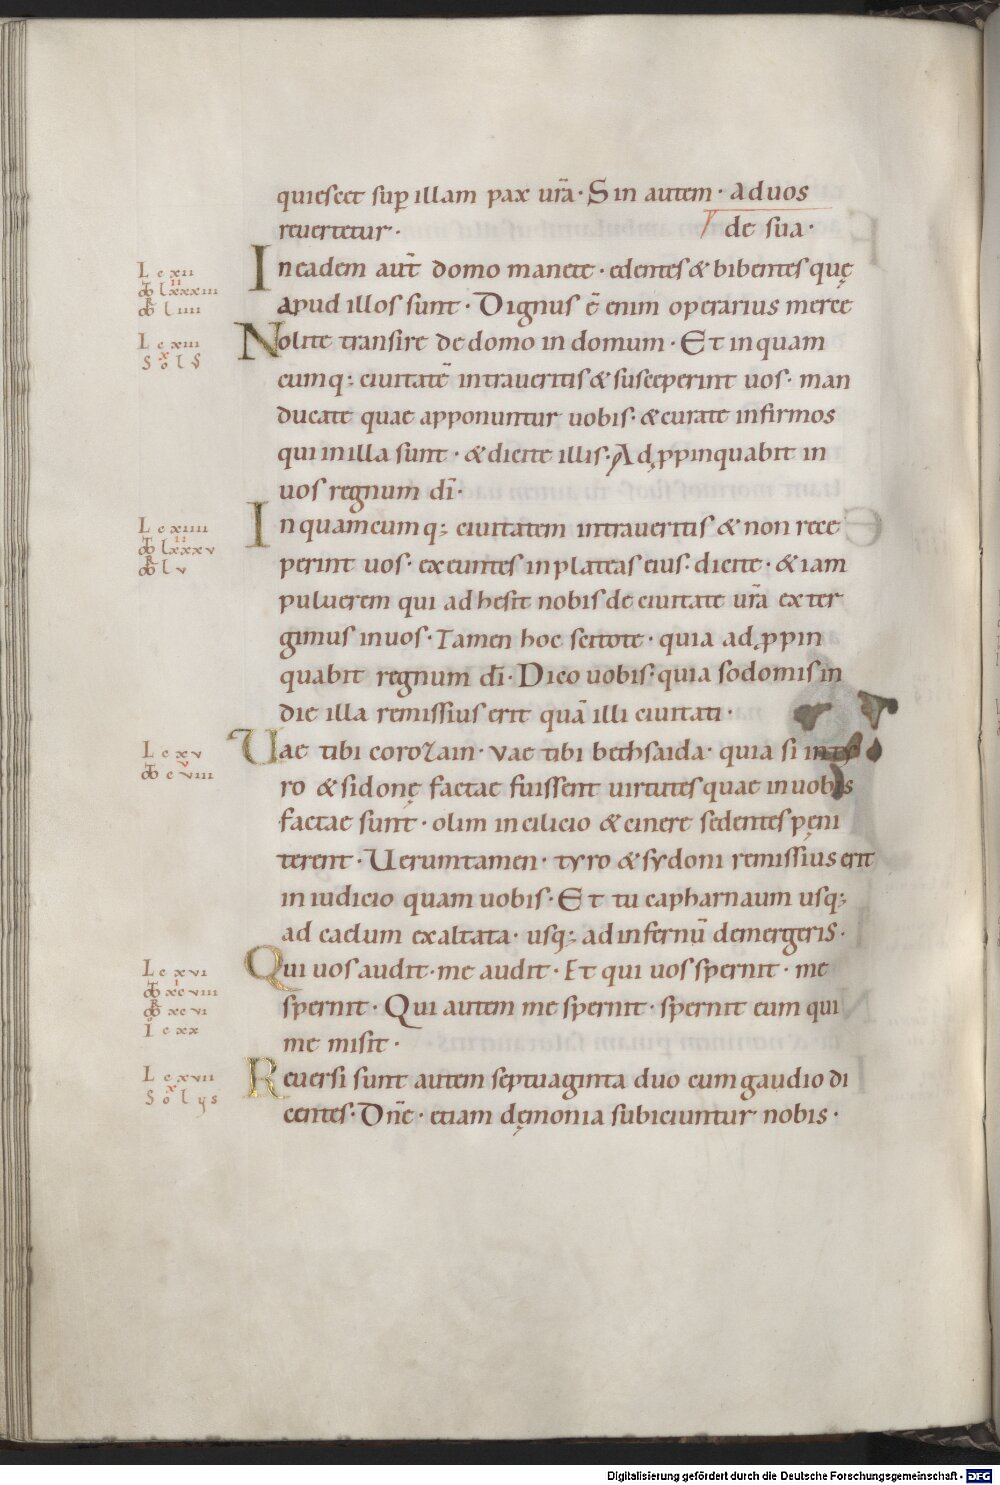 quiescet sup illam pax ur̄a · Sin autem · ad uos
reuertetur · de sua ·
In eadem aut̄ domo manete · edentes & bibentes quę
apud illos sunt · Dignus ē enim operarius mercę
Nolite transire de domo in domum · Et in quam
cumq; ciuitatē intraueritis & susceperint uos · man
ducate quae apponuntur uobis · & curate infirmos
qui in illa sunt · & dicite illis · Adp̱pinquabit in
uos regnum dī ·
In quamcumq; ciuitatem intraueritis & non rece
perint uos · exeuntes in plateas eius · dicite · & iam
puluerem qui adhesit nobis de ciuitate ur̄a exter
gimus in uos · Tamen hoc scitote · quia adp̱pin
quabit regnum dī · Dico uobis · quia sodomis in
die illa remissius erit quā illi ciuitati ·
Uae tibi corozain · vae tibi bethsaida · quia si in ty
ro & sidonę factae fuissent uirtutes quae in uobis
factae sunt · olim in cilicio & cinere sedentes pęni
terent · Uerumtamen · tyro & sydoni remissius erit
in iudicio quam uobis · Et tu capharnaum usq;
ad caelum exaltata · usq; ad infernū demergeris ·
Qui uos audit · me audit · Et qui uos spernit · me
spernit · Qui autem me spernit · spernit eum qui
me misit ·
Reuersi sunt autem septuaginta duo cum gaudio di
centes · Dn̄e · etiam dęmonia subiciuntur nobis ·
L c xii
lxxxiii
l iiii
L c xiii
L c xiiii
lxxxv
l v
L c xv
c viii
L c xvi
xc viii
xc vi
I c xx
L c xvii
Digitalisierung gefördert durch die Deutsche Forschungsgemeinschaft - DFG